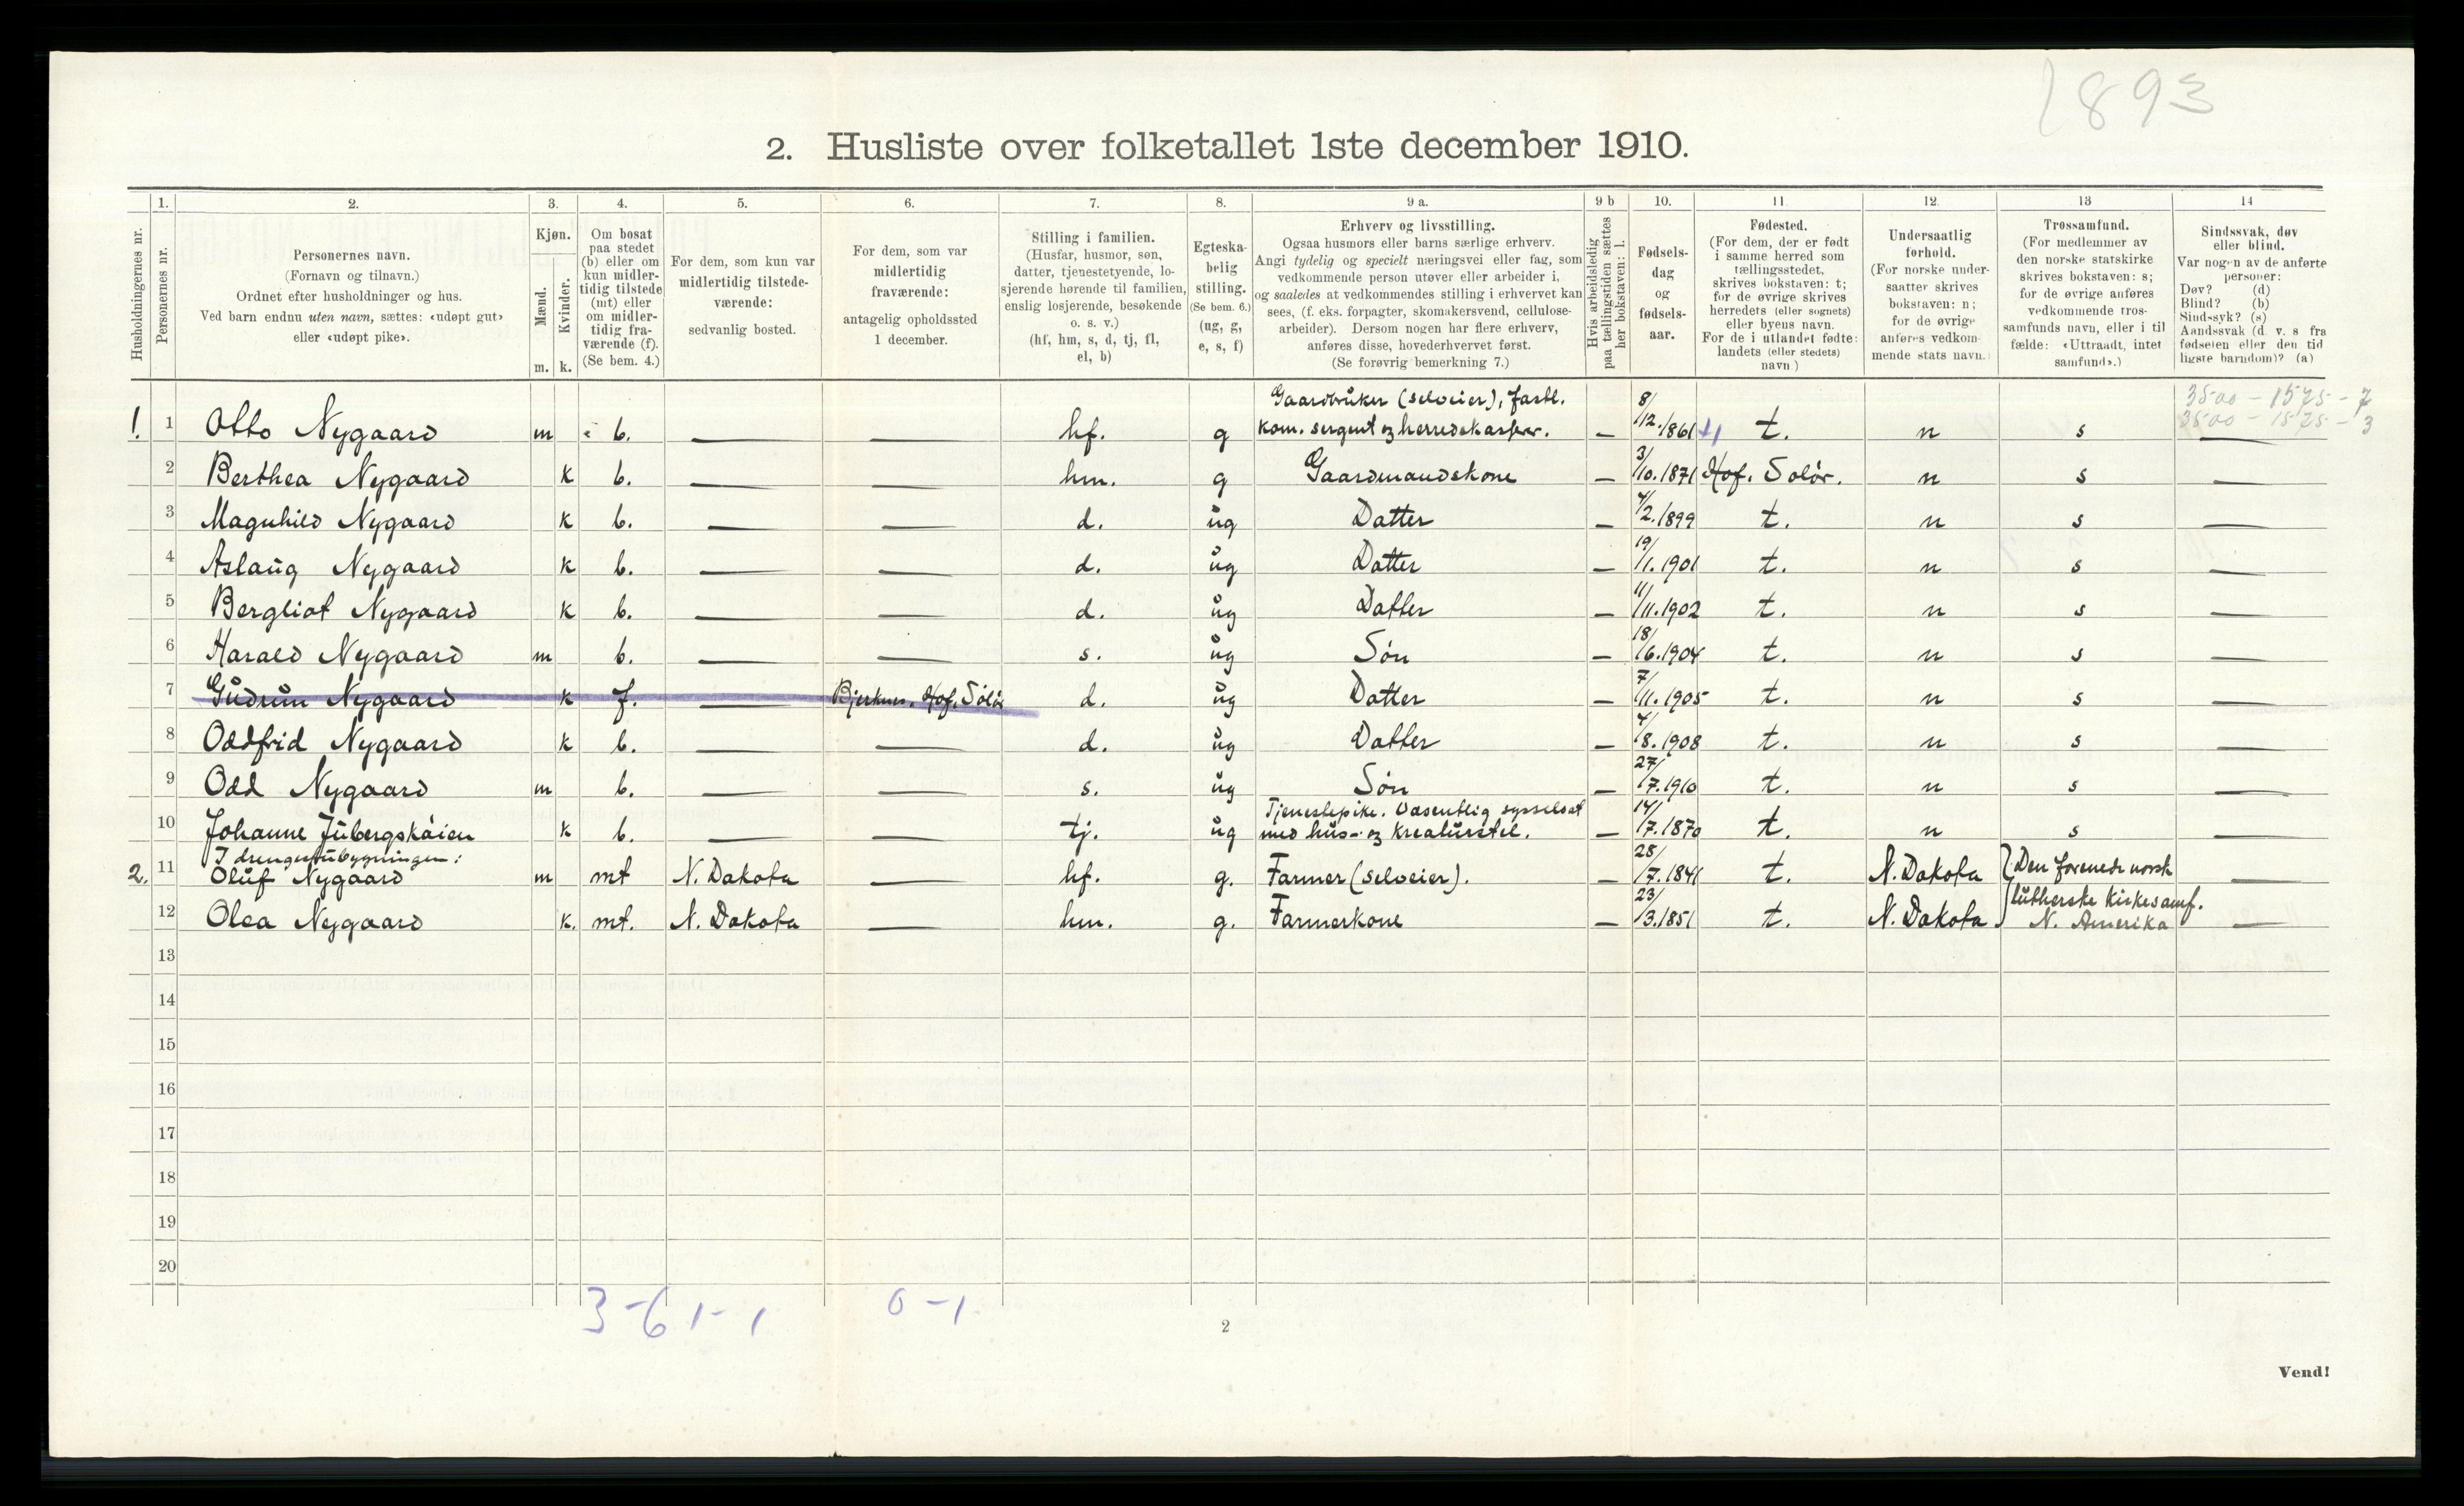 1893
2. Husliste over folketallet 1ste december 1910.
Husholdningernes nr.
1.
Personernes nr.
2.
Personernes navn.
(Fornavn og tilnavn.)
Ordnet efter husholdninger og hus.
Ved barn endnu uten navn, sættes: «udøpt gut»
eller «udøpt pike».
3.
Kjøn.
Mænd.
Kvinder.
m. k.
4.
Om bosat
paa stedet
(b) eller om
kun midler-
tidig tilstede
(mt) eller
om midler-
tidig fra-
værende (f).
(Se bem. 4.)
5.
For dem, som kun var
midlertidig tilstede-
værende:
sedvanlig bosted.
6.
For dem, som var
midlertidig
fraværende:
antagelig opholdssted
1 december.
7.
Stilling i familien.
(Husfar, husmor, søn,
datter, tjenestetyende, lo-
sjerende hørende til familien,
enslig losjerende, besøkende
o. s. v.)
(hf, hm, s, d, tj, fl,
el, b)
8.
Egteska-
belig
stilling.
(Se bem. 6.)
(ug, g,
e, s, f)
9 a.
Erhverv og livsstilling.
Ogsaa husmors eller barns særlige erhverv.
Angi tydelig og specielt næringsvei eller fag, som
vedkommende person utøver eller arbeider i,
og saaledes at vedkommendes stilling i erhvervet kan
sees, (f. eks. forpagter, skomakersvend, cellulose-
arbeider). Dersom nogen har flere erhverv,
anføres disse, hovederhvervet først.
(Se forøvrig bemerkning 7.)
9 b
Hvis arbeidsledig
paa tællingstiden sættes
her bokstaven: l.
10.
Fødsels-
dag
og
fødsels-
aar.
11.
Fødested.
(For dem, der er født
i samme herred som
tællingsstedet,
skrives bokstaven: t;
for de øvrige skrives
herredets (eller sognets)
eller byens navn.
For de i utlandet fødte:
landets (eller stedets)
navn.)
12.
Undersaatlig
forhold.
(For norske under-
saatter skrives
bokstaven: n;
for de øvrige
anføres vedkom-
mende stats navn.)
13
Trossamfund.
(For medlemmer av
den norske statskirke
skrives bokstaven: s;
for de øvrige anføres
vedkommende tros-
samfunds navn, eller i til
fælde: «Uttraadt, intet
samfund».)
14
Sindssvak, døv
eller blind.
Var nogen av de anførte
personer:
Døv? (d)
Blind? (b)
Sindssyk? (s)
Aandssvak (d. v. s. fra
fødselen eller den tid
ligste barndom)? (a)
3500 - 1575 - 7
3500 - 1575 - 3
Gaardbruker (selveier), fastl.
1. 1 Otto Nygaard m b. — — hf. g kom. sergent og herredskasserer. — 8/12.1861 t. n s —
2 Berthea Nygaard k b. — — hm. g Gaardmandskone — 3/10.1871 Hof. Solør. n s —
3 Magnhild Nygaard k b. — — d. ug Datter — 4/2.1899 t. n s —
4 Aslaug Nygaard k b. — — d. ug Datter — 19/1.1901 t. n s —
5 Bergliot Nygaard k b. — — d. ug Datter — 11/11.1902 t. n s —
6 Harald Nygaard m b. — — s. ug Søn — 18/6.1904 t. n s —
7 Gudrun Nygaard k f. — Bjerknes. Hof. Solør d. ug Datter — 7/11.1905 t. n s —
8 Oddfrid Nygaard k b. — — d. ug Datter — 4/8.1908 t. n s —
9 Odd Nygaard m b. — — s. ug Søn — 27/7.1910 t. n s —
Tjenestepike. Væsentlig sysselsat
10 Johanne Jubergskåien k b. — — tj. ug med hus- og kreaturstel. — 14/7.1870 t. n s —
I drengestubygningen:
2. 11 Oluf Nygaard m mt N. Dakota — hf. g. Farmer (selveier). — 28/7.1841 t. N. Dakota Den forenede norsk —
lutherske Kirkesamf.
12 Olea Nygaard k. mt. N. Dakota — hm. g. Farmerkone — 23/3.1851 t. N. Dakota N. Amerika —
13
14
15
16
17
18
19
20
3-6 1-1 0-1
2
Vend!